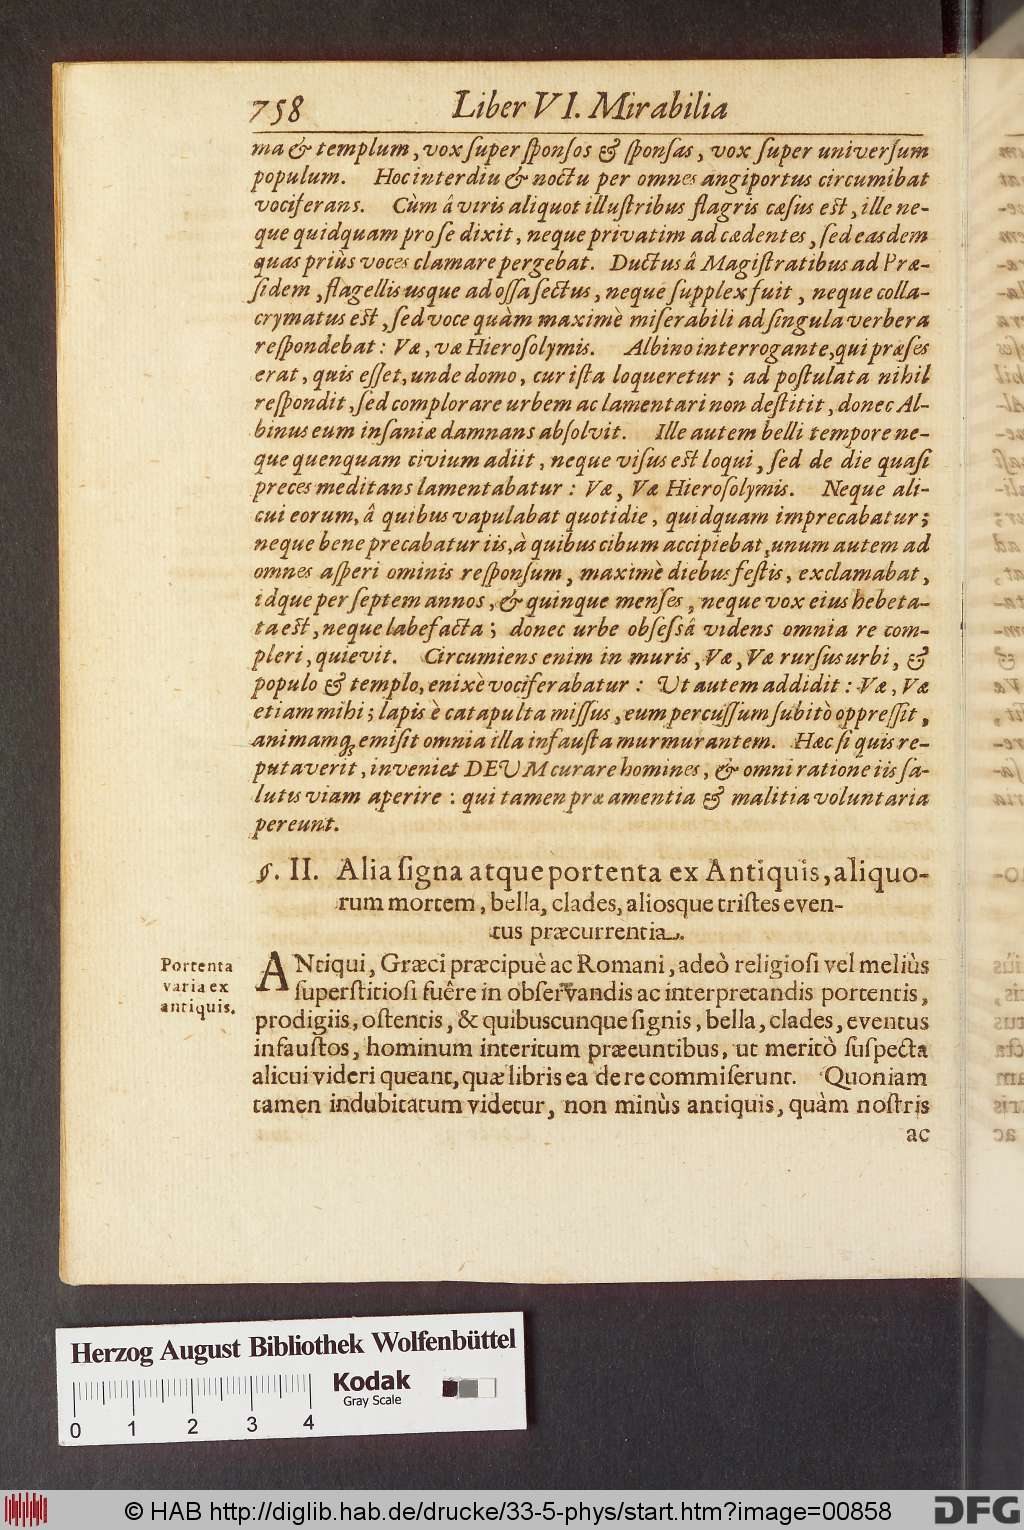 758 Liber VI. Mirabilia
ma & templum, vox super sponsos & sponsas, vox super universum
populum. Hoc interdiu & noctu per omnes angiportus circumibat
vociferans. Cùm â viris aliquot illustribus flagris cæsus est, ille ne-
que quidquam pro se dixit, neque privatim ad cædentes, sed easdem
quas priùs voces clamare pergebat. Ductus â Magistratibus ad Præ-
sidem, flagellis usque ad ossa sectus, neque supplex fuit, neque colla-
crymatus est, sed voce quàm maximè miserabili ad singula verbera
respondebat: Væ, væ Hierosolymis. Albino interrogante, qui præses
erat, quis esset, unde domo, cur ista loqueretur; ad postulata nihil
respondit, sed complorare urbem ac lamentari non destitit, donec Al-
binus eum insaniæ damnans absolvit. Ille autem belli tempore ne-
que quenquam civium adiit, neque visus est loqui, sed de die quasi
preces meditans lamentabatur: Væ, Væ Hierosolymis. Neque ali-
cui eorum, â quibus vapulabat quotidie, quidquam imprecabatur;
neque bene precabatur iis, à quibus cibum accipiebat, unum autem ad
omnes asperi ominis responsum, maximè diebus festis, exclamabat,
idque per septem annos, & quinque menses, neque vox eius hebeta-
ta est, neque labefacta; donec urbe obsessâ videns omnia re com-
pleri, quievit. Circumiens enim in muris, Væ, Væ rursus urbi, &
populo & templo, enixè vociferabatur: Ut autem addidit: Væ, Væ
etiam mihi; lapis è catapulta missus, eum percussum subitò oppressit,
animamq; emisit omnia illa infausta murmurantem. Hæc si quis re-
putaverit, inveniet DEUM curare homines, & omni ratione iis sa-
lutis viam aperire: qui tamen præ amentia & malitia voluntaria
pereunt.
§. II. Alia signa atque portenta ex Antiquis, aliquo-
rum mortem, bella, clades, aliosque tristes even-
tus præcurrentia.
Portenta
varia ex
antiquis.
ANtiqui, Græci præcipuè ac Romani, adeò religiosi vel meliùs
superstitiosi fuêre in observandis ac interpretandis portentis,
prodigiis, ostentis, & quibuscunque signis, bella, clades, eventus
infaustos, hominum interitum præeuntibus, ut meritò suspecta
alicui videri queant, quæ libris ea de re commiserunt. Quoniam
tamen indubitatum videtur, non minùs antiquis, quàm nostris
ac
Herzog August Bibliothek Wolfenbüttel
Kodak
Gray Scale
0 1 2 3 4
© HAB http://diglib.hab.de/drucke/33-5-phys/start.htm?image=00858
DFG